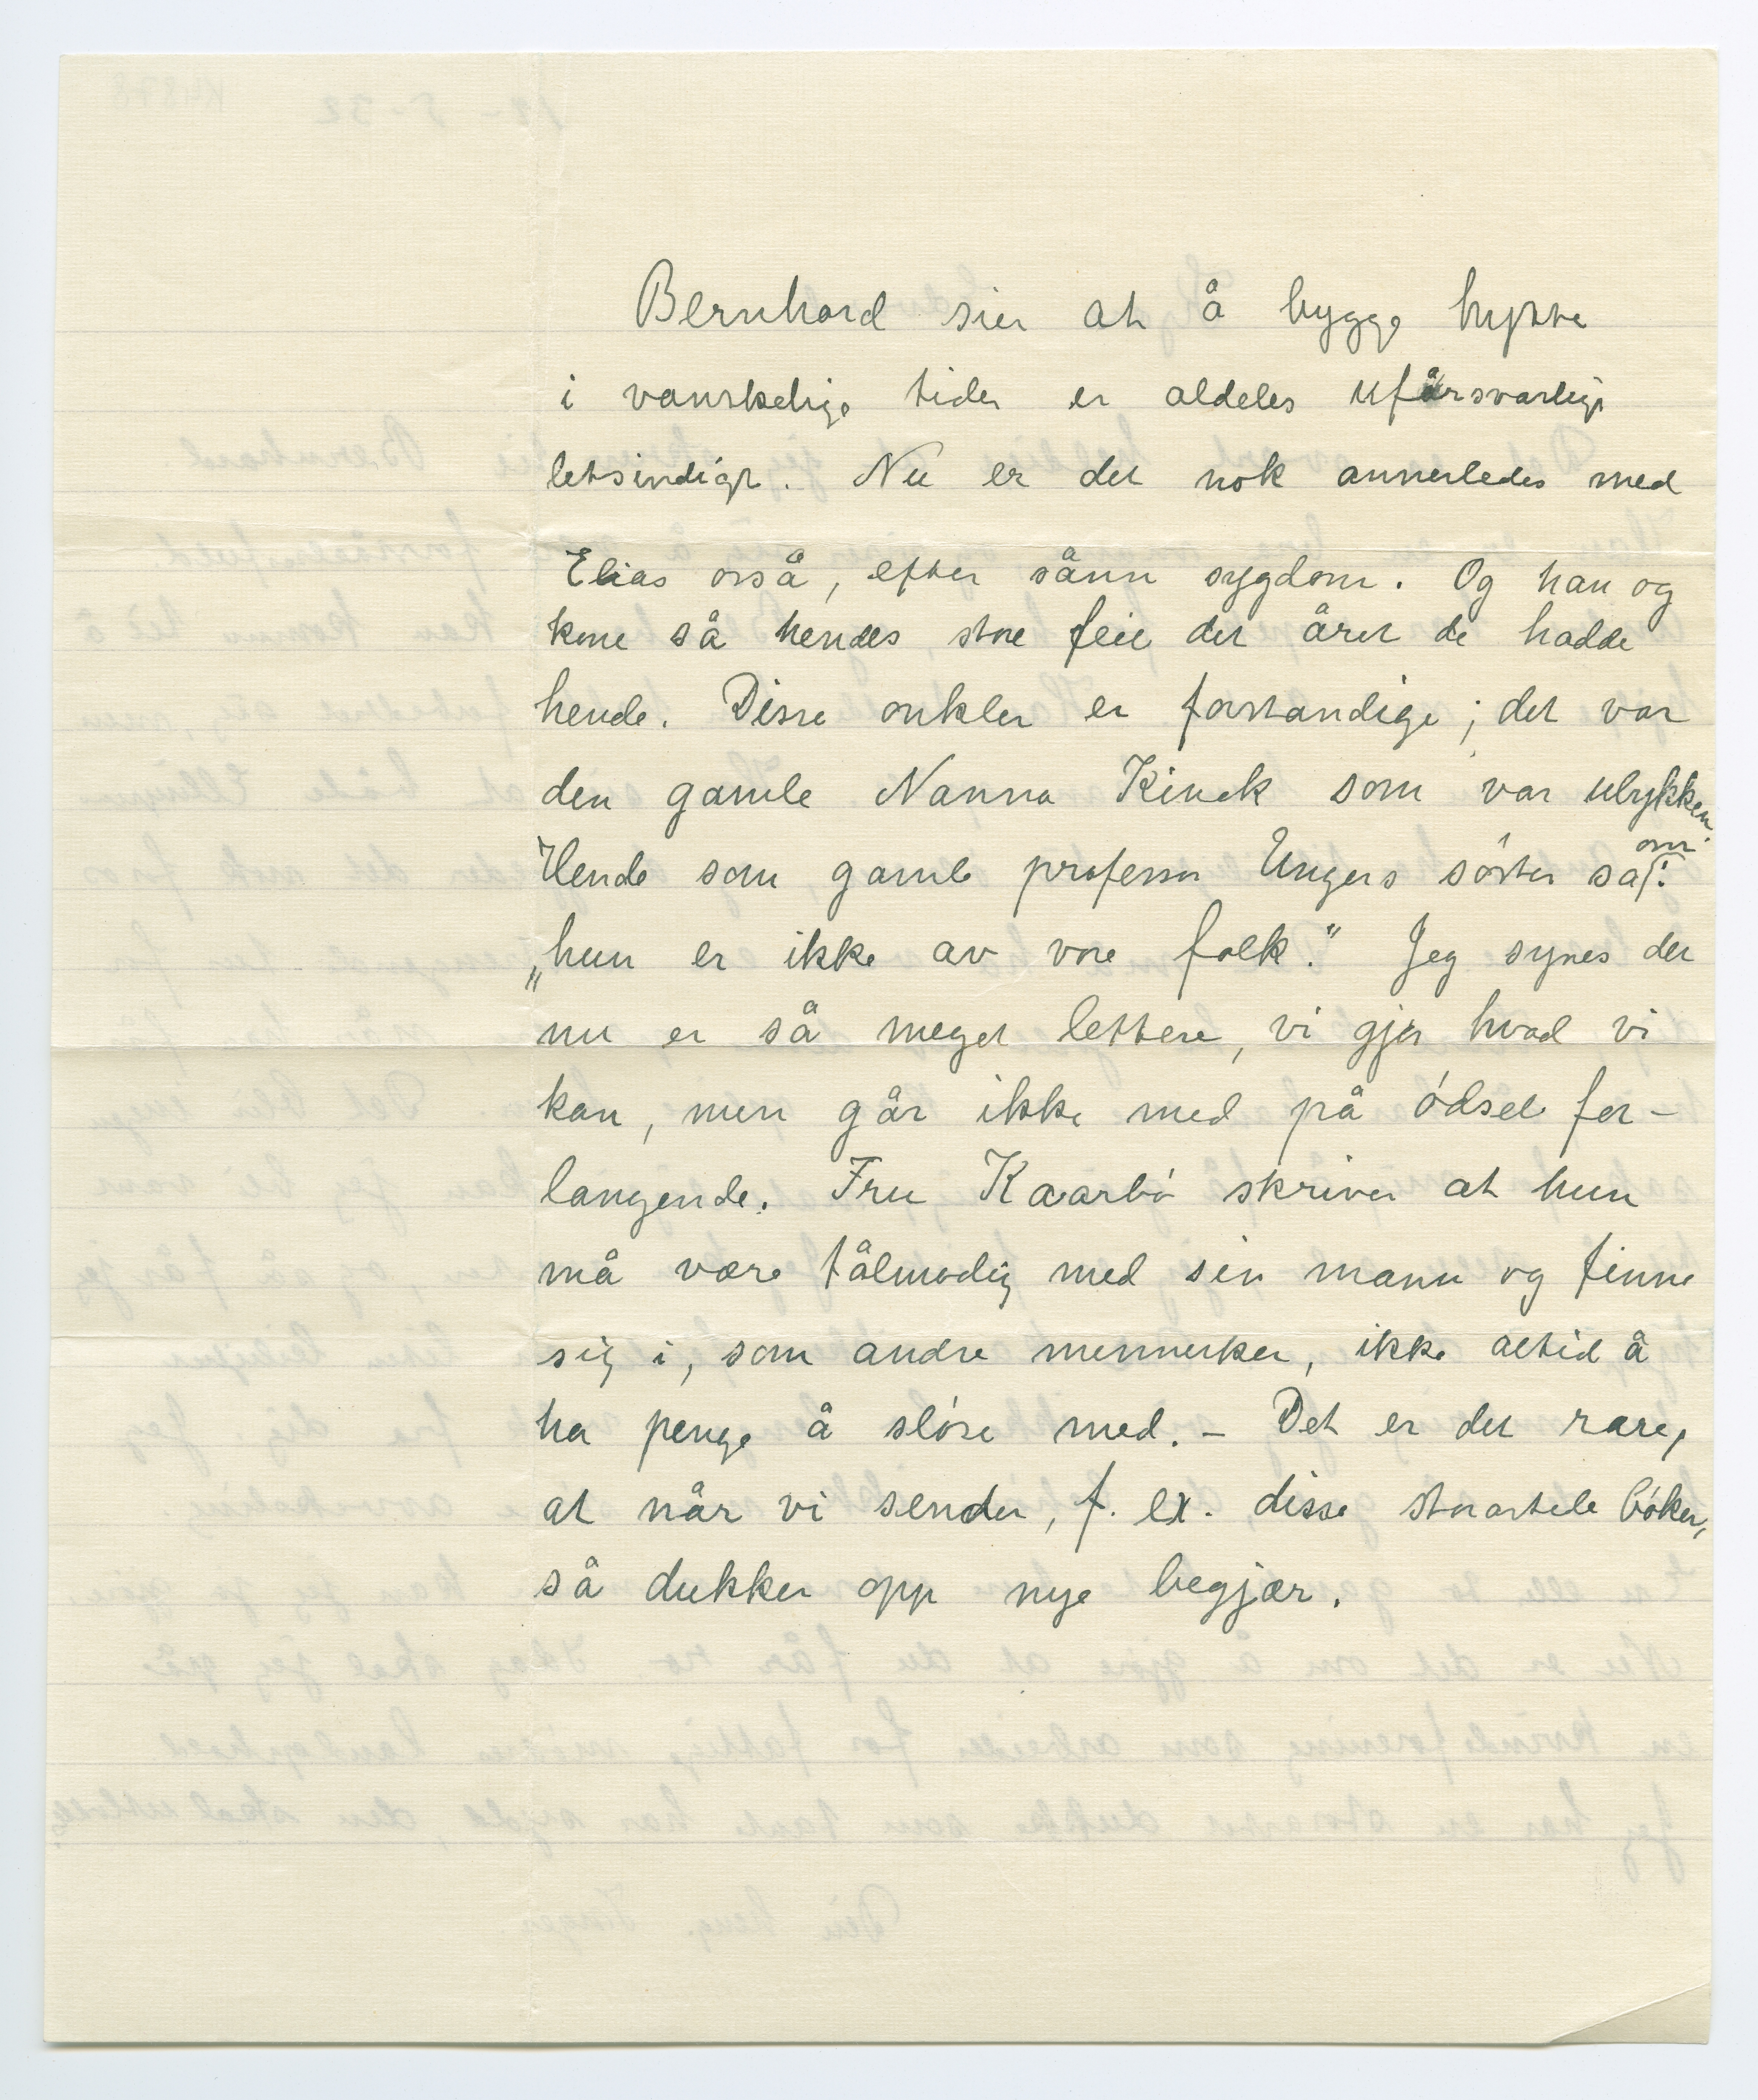 Bernhard sier at å bygge hytte
i vanskelige tider er aldeles uforsvarlig
letsindigt. Nu er det nok annerledes med
Elias osså, efter sånn sygdom. Og han og
kone så hendes store feil det året de hadde
hende. Disse onkler er forstandige; det var
den gamle Nanna Kinck som var ulykken.
Hende som gamle professor Ungers søster sa om:
„hun er ikke av vore folk.“ Jeg synes det
nu er så meget lettere, vi gjør hvad vi
kan, men går ikke med på ødsel for-
langende. Fru Kaarbø skriver at hun
må være tålmodig med sin mann og finne
sig i, som andre mennesker, ikke altid å
ha penge å sløse med. – Det er det rare,
at når vi sender, f. ex. disse storartede bøker,
så dukker opp nye begjær.